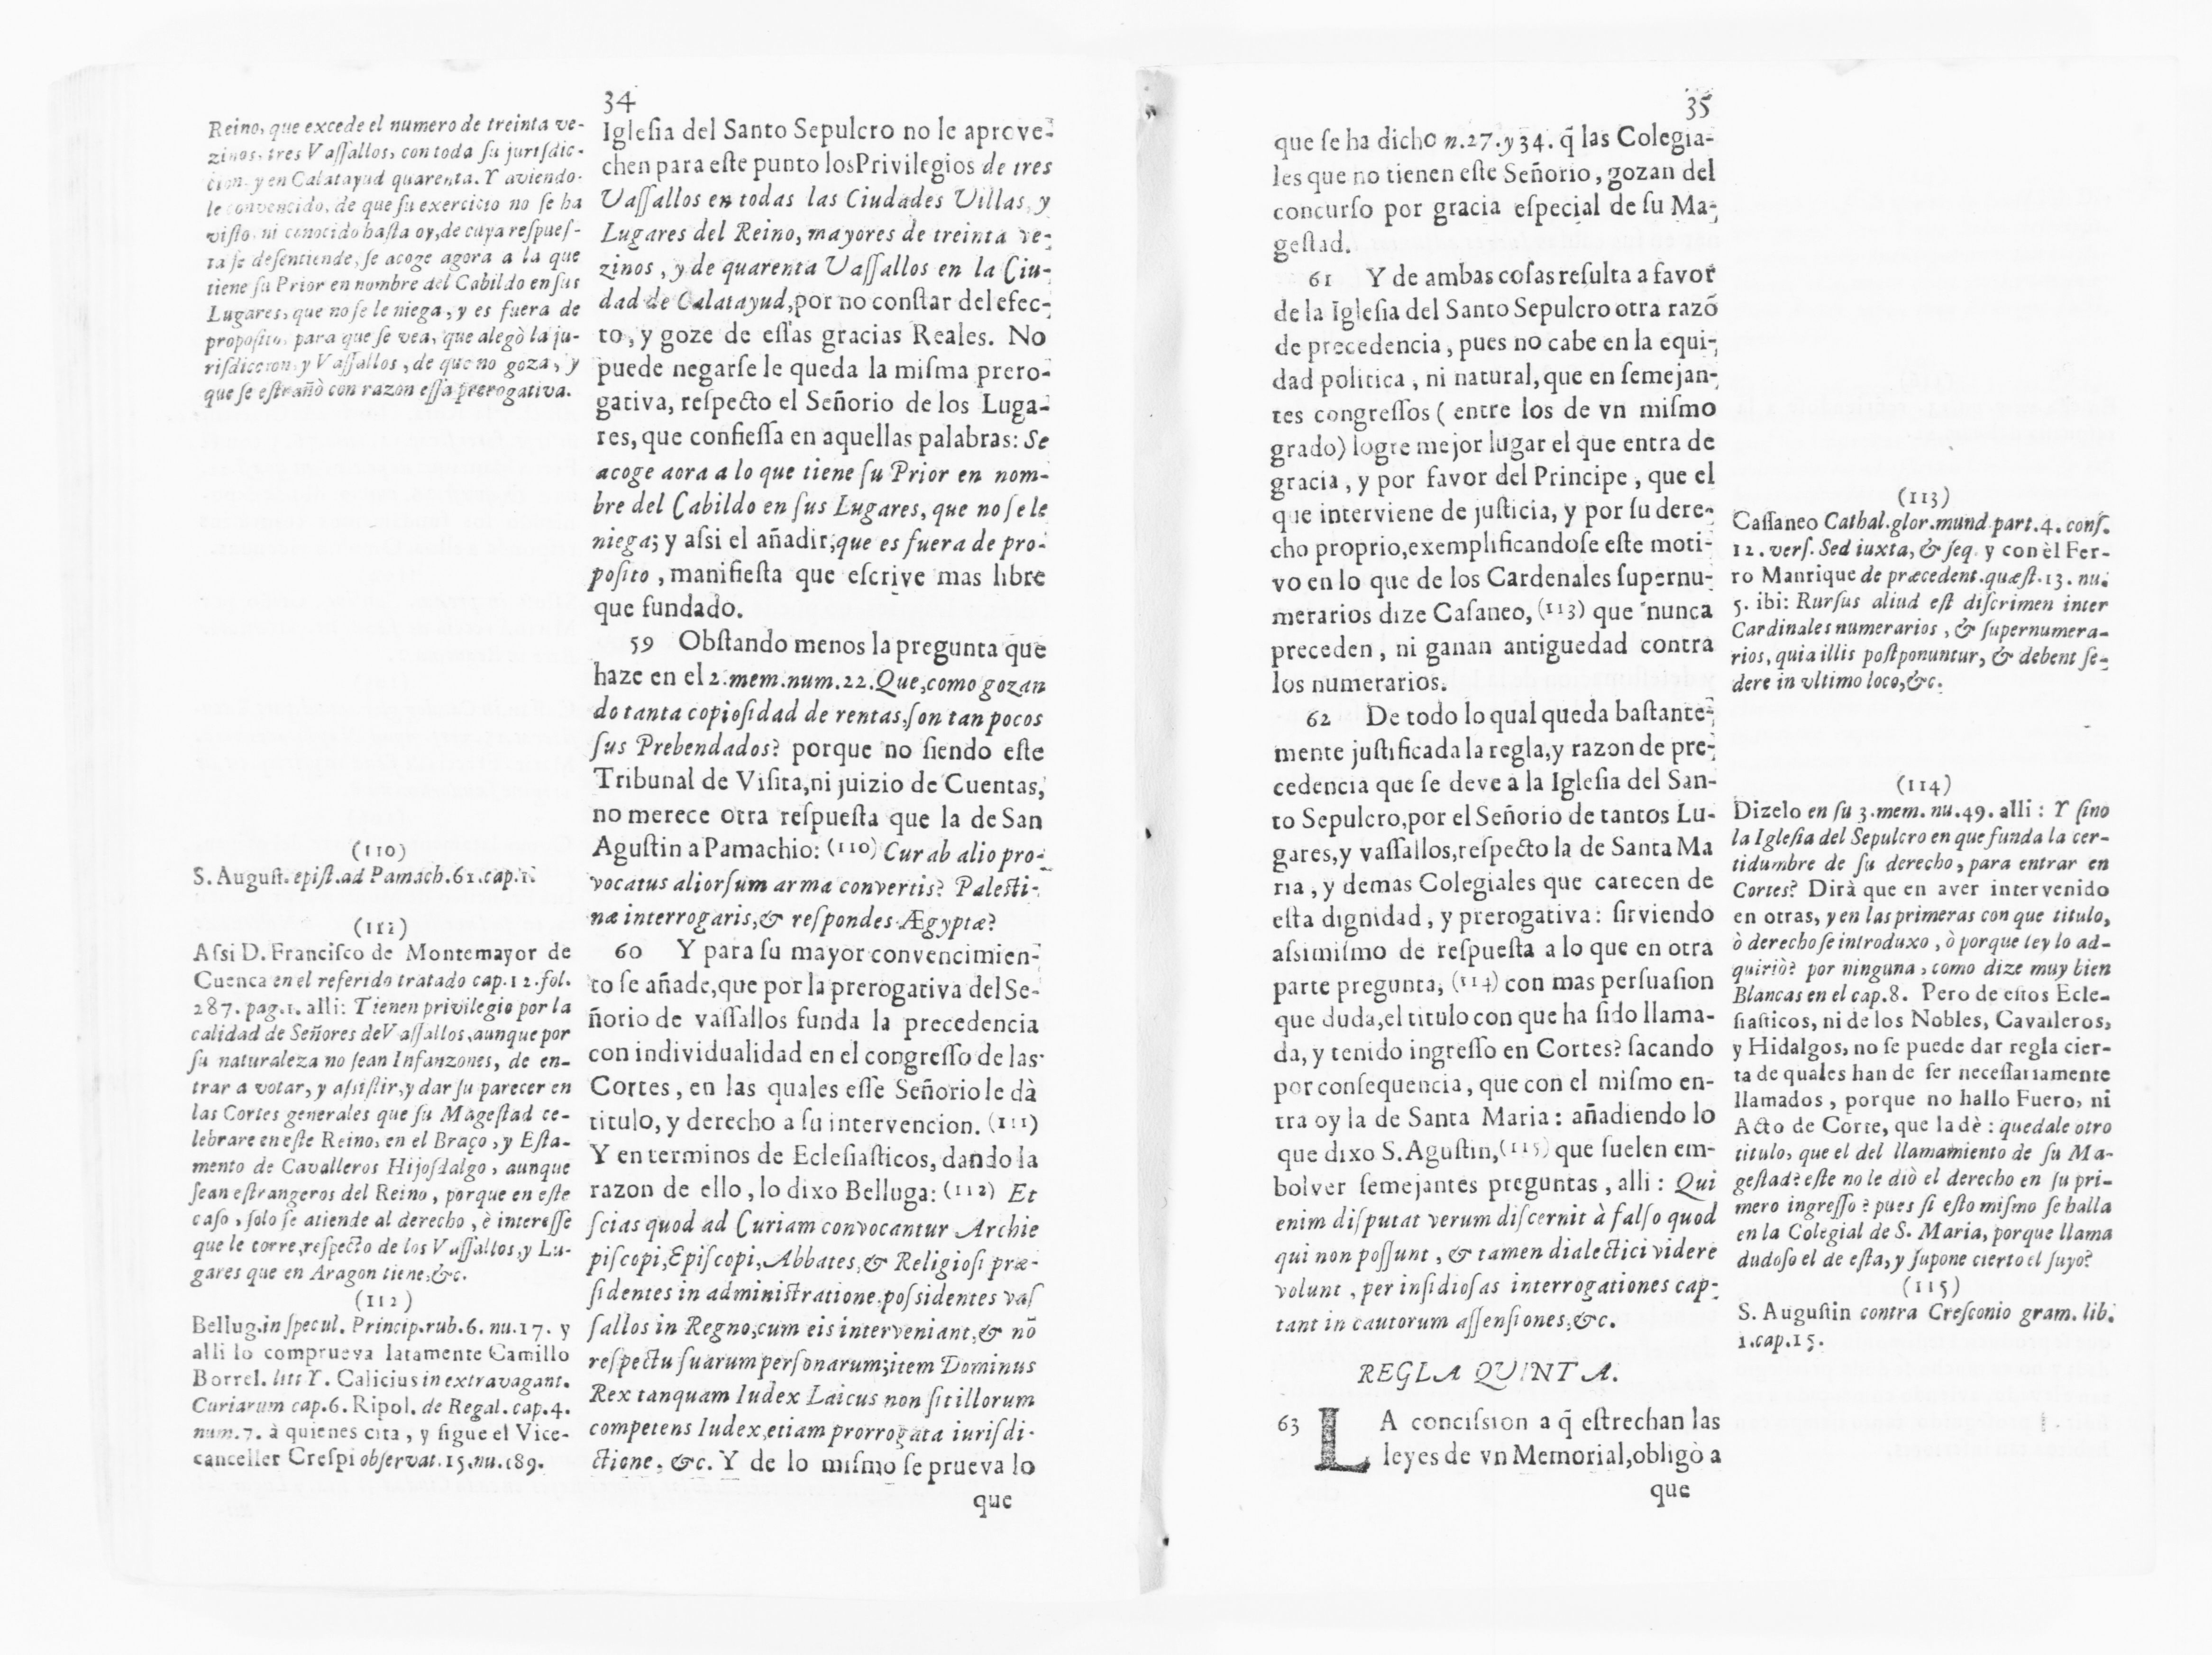 34
Reino, que excede el numero de treinta ve-
zinos, tres Vaſſallos, con toda ſu juriſdic-
cion, y en Calatayud quarenta. Y aviendo-
le convencido, de que ſu exercicio no ſe ha
viſto, ni conocido haſta oy, de cuya reſpueſ-
ta ſe deſentiende, ſe acoge agora a la que
tiene ſu Prior en nombre del Cabildo en ſus
Lugares, que no ſe le niega, y es fuera de
propoſito, para que ſe vea, que alegò la ju-
riſdiccion, y Vaſſallos, de que no goza, y
que ſe eſtrañò con razon eſſa prerogativa.
(110)
S. Auguſt. epiſt. ad Pamach. 61. cap. 1.
(111)
Aſsi D. Franciſco de Montemayor de
Cuenca en el referido tratado cap. 12. fol.
287. pag. 1. alli: Tienen privilegio por la
calidad de Señores de Vaſſallos, aunque por
ſu naturaleza no ſean Infanzones, de en-
trar a votar, y aſsiſtir, y dar ſu parecer en
las Cortes generales que ſu Mageſtad ce-
lebrare en eſte Reino, en el Braço, y Eſta-
mento de Cavalleros Hijoſdalgo, aunque
ſean eſtrangeros del Reino, porque en eſte
caſo, ſolo ſe atiende al derecho, è intereſſe
que le corre, reſpecto de los Vaſſallos, y Lu-
gares que en Aragon tiene, &c.
(112)
Bellug. in ſpecul. Princip. rub. 6. nu. 17. y
alli lo comprueva latamente Camillo
Borrel. litt Y. Calicius in extravagant.
Curiarum cap. 6. Ripol. de Regal. cap. 4.
num. 7. à quienes cita, y ſigue el Vice-
canceller Creſpi obſervat. 15. nu. 189.
Igleſia del Santo Sepulcro no le aprove-
chen para eſte punto los Privilegios de tres
Vaſſallos en todas las Ciudades Villas, y
Lugares del Reino, mayores de treinta ve-
zinos, y de quarenta Vaſſallos en la Ciu-
dad de Calatayud, por no conſtar del efec-
to, y goze de eſſas gracias Reales. No
puede negarſe le queda la miſma prero-
gativa, reſpecto el Señorio de los Luga-
res, que confieſſa en aquellas palabras: Se
acoge aora a lo que tiene ſu Prior en nom-
bre del Cabildo en ſus Lugares, que no ſe le
niega; y aſsi el añadir, que es fuera de pro-
poſito, manifieſta que eſcrive mas libre
que fundado.
59 Obſtando menos la pregunta que
haze en el 2. mem. num. 22. Que, como gozan
do tanta copioſidad de rentas, ſon tan pocos
ſus Prebendados? porque no ſiendo eſte
Tribunal de Viſita, ni juizio de Cuentas,
no merece otra reſpueſta que la de San
Aguſtin a Pamachio: (110) Cur ab alio pro-
vocatus aliorſum arma convertis? Paleſti-
næ interrogaris, & reſpondes Ægyptæ?
60 Y para ſu mayor convencimien-
to ſe añade, que por la prerogativa del Se-
ñorio de vaſſallos funda la precedencia
con individualidad en el congreſſo de las
Cortes, en las quales eſſe Señorio le dà
titulo, y derecho a ſu intervencion. (111)
Y en terminos de Ecleſiaſticos, dando la
razon de ello, lo dixo Belluga: (112) Et
ſcias quod ad Curiam convocantur Archie
piſcopi, Epiſcopi, Abbates, & Religioſi præ-
ſidentes in adminiſtratione, poſsidentes vaſ
ſallos in Regno, cum eis interveniant, & nõ
reſpectu ſuarum perſonarum; item Dominus
Rex tanquam Iudex Laicus non ſit illorum
competens Iudex, etiam prorrogata iuriſdi-
ctione, &c. Y de lo miſmo ſe prueva lo
que
35
que ſe ha dicho n. 27. y 34. q̃ las Colegia-
les que no tienen eſte Señorio, gozan del
concurſo por gracia eſpecial de ſu Ma-
geſtad.
61 Y de ambas coſas reſulta a favor
de la Igleſia del Santo Sepulcro otra razõ
de precedencia, pues no cabe en la equi-
dad politica, ni natural, que en ſemejan-
tes congreſſos (entre los de vn miſmo
grado) logre mejor lugar el que entra de
gracia, y por favor del Principe, que el
que interviene de juſticia, y por ſu dere-
cho proprio, exemplificandoſe eſte moti-
vo en lo que de los Cardenales ſupernu-
merarios dize Caſaneo, (113) que nunca
preceden, ni ganan antiguedad contra
los numerarios.
62 De todo lo qual queda baſtante-
mente juſtificada la regla, y razon de pre-
cedencia que ſe deve à la Igleſia del San-
to Sepulcro, por el Señorio de tantos Lu-
gares, y vaſſallos, reſpecto la de Santa Ma
ria, y demas Colegiales que carecen de
eſta dignidad, y prerogativa: ſirviendo
aſsimiſmo de reſpueſta a lo que en otra
parte pregunta, (114) con mas perſuaſion
que duda, el titulo con que ha ſido llama-
da, y tenido ingreſſo en Cortes? ſacando
por conſequencia, que con el miſmo en-
tra oy la de Santa Maria: añadiendo lo
que dixo S. Aguſtin, (115) que ſuelen em-
bolver ſemejantes preguntas, alli: Qui
enim diſputat verum diſcernit à falſo quod
qui non poſſunt, & tamen dialectici videre
volunt, per inſidioſas interrogationes cap-
tant in cautorum aſſenſiones, &c.
REGLA QUINTA.
63 LA conciſsion a q̃ eſtrechan las
leyes de vn Memorial, obligò a
que
(113)
Caſſaneo Cathal. glor. mund part. 4. conſ.
12. verſ. Sed iuxta, & ſeq. y con èl Fer-
ro Manrique de præcedent. quæſt. 13. nu.
5. ibi: Rurſus aliud eſt diſcrimen inter
Cardinales numerarios, & ſupernumera-
rios, quia illis poſtponuntur, & debent ſe-
dere in vltimo loco, &c.
(114)
Dizelo en ſu 3. mem. nu. 49. alli: Y ſino
la Igleſia del Sepulcro en que funda la cer-
tidumbre de ſu derecho, para entrar en
Cortes? Dirà que en aver intervenido
en otras, y en las primeras con que titulo,
ò derecho ſe introduxo, ò porque ley lo ad-
quiriò? por ninguna, como dize muy bien
Blancas en el cap. 8. Pero de eſtos Ecle-
ſiaſticos, ni de los Nobles, Cavalleros,
y Hidalgos, no ſe puede dar regla cier-
ta de quales han de ſer neceſſariamente
llamados, porque no hallo Fuero, ni
Acto de Corte, que la dè: quedale otro
titulo, que el del llamamiento de ſu Ma-
geſtad? eſte no le diò el derecho en ſu pri-
mero ingreſſo? pues ſi eſto miſmo ſe halla
en la Colegial de S. Maria, porque llama
dudoſo el de eſta, y ſupone cierto el ſuyo?
(115)
S. Auguſtin contra Creſconio gram. lib.
1. cap. 15.